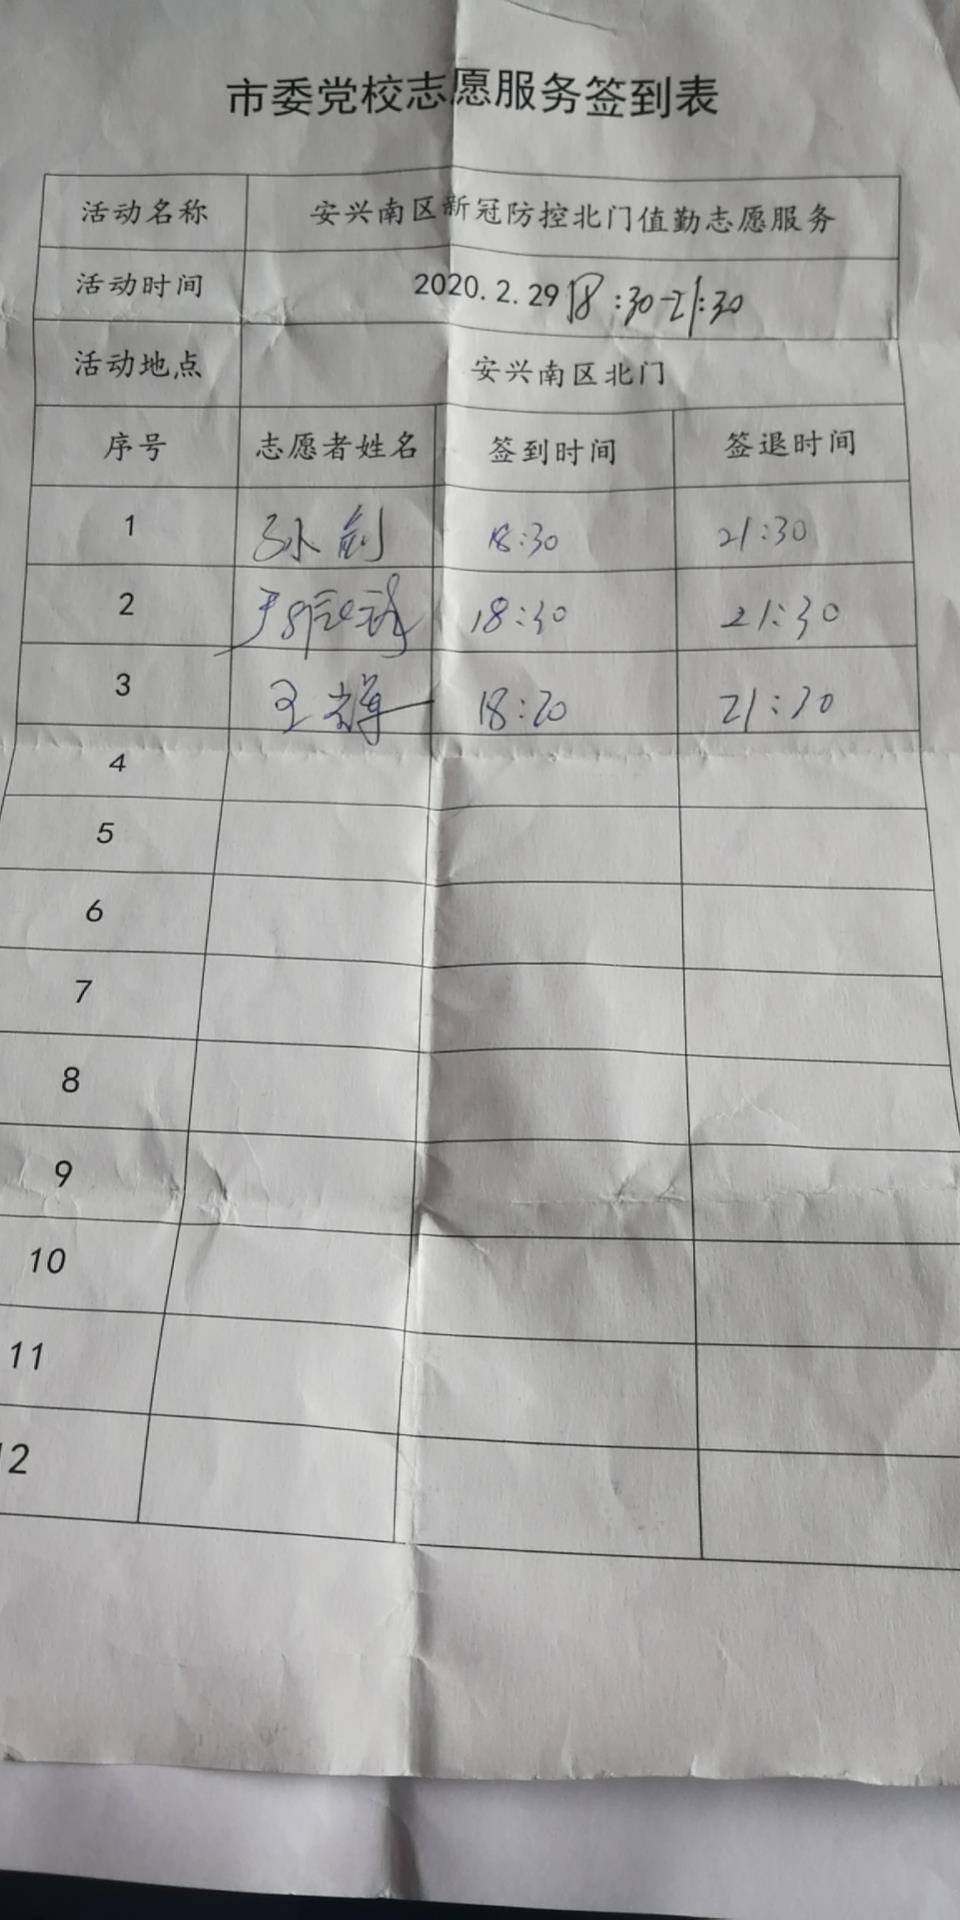 市委党校志愿服务签到表
活动名称 安兴南区新冠防控北门值勤志愿服务
活动时间 2020.2.29 18:30-21:30
活动地点 安兴南区北门
序号 志愿者姓名 签到时间 签退时间
1 孙剑 18:30 21:30
2 18:30 21:30
3 王 18:20 21:30
4
5
6
7
8
9
10
11
12